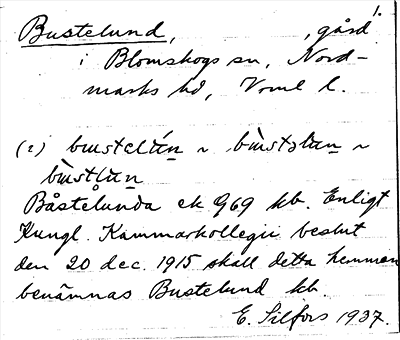 1.
Bustelund, , gård
i Blomskogs sn, Nord-
marks hd, Vrml l.
(2) bustelún ~ bùstəlun ~
bùstlun
Båstelunda ek 969 kb. Enligt
Kungl. Kammarkollegii beslut
den 20 dec. 1915 skall detta hemman
benämnas Bustelund kb.
E. Silfors 1937.